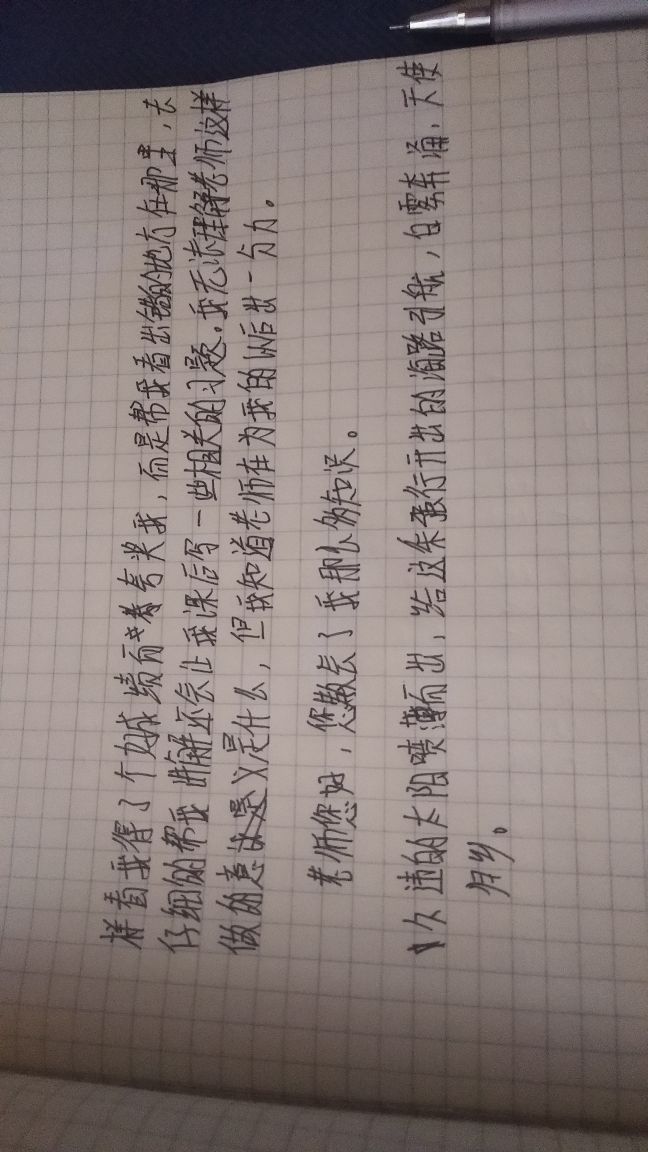 样看我得了个好成绩而夸奖我，而是帮我看出错的地方在那里，去
仔细的帮我讲解还会让我课后写一些相关的习题。我无法理解老师这样
做的意义是什么，但我知道老师在为我的以后出一分力。
老师您好，您教会了我那么多知识。
久违的太阳喷薄而出，给这朵强行开出的海路引航，白云奔涌，天使
归乡。